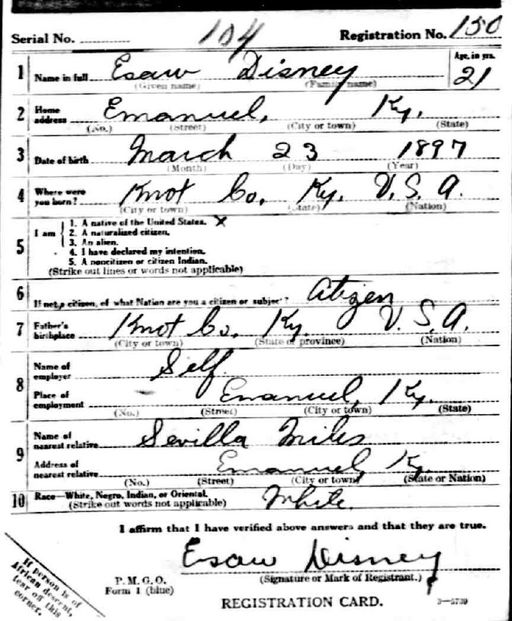 Serial No. 104 Registration No. 150
1 Name in full Esaw Disney Age, in yrs. 21
(Given name) (Family name)
2 Home address Emanuel, Ky.
(No.) (Street) (City or town) (State)
3 Date of birth March 23 1897
(Month) (Day) (Year)
4 Where were you born? Knot Co. Ky. U.S.A.
(City or town) (State) (Nation)
5 I am
1. A native of the United States. X
2. A naturalized citizen.
3. An alien.
4. I have declared my intention.
5. A noncitizen or citizen Indian.
(Strike out lines or words not applicable)
6 If not a citizen, of what Nation are you a citizen or subject? Citizen
7 Father's birthplace Knot Co. Ky. U.S.A.
(City or town) (State or province) (Nation)
8 Name of employer Self
Place of employment Emanuel, Ky.
(No.) (Street) (City or town) (State)
9 Name of nearest relative Sevilla Miles
Address of nearest relative Emanuel, Ky
(No.) (Street) (City or town) (State or Nation)
10 Race—White, Negro, Indian, or Oriental. White
(Strike out words not applicable)
I affirm that I have verified above answers and that they are true.
Esaw Disney
(Signature or Mark of Registrant.)
P. M. G. O.
Form 1 (blue)
REGISTRATION CARD.
3—5739
If person is of
African descent,
tear off this
corner.